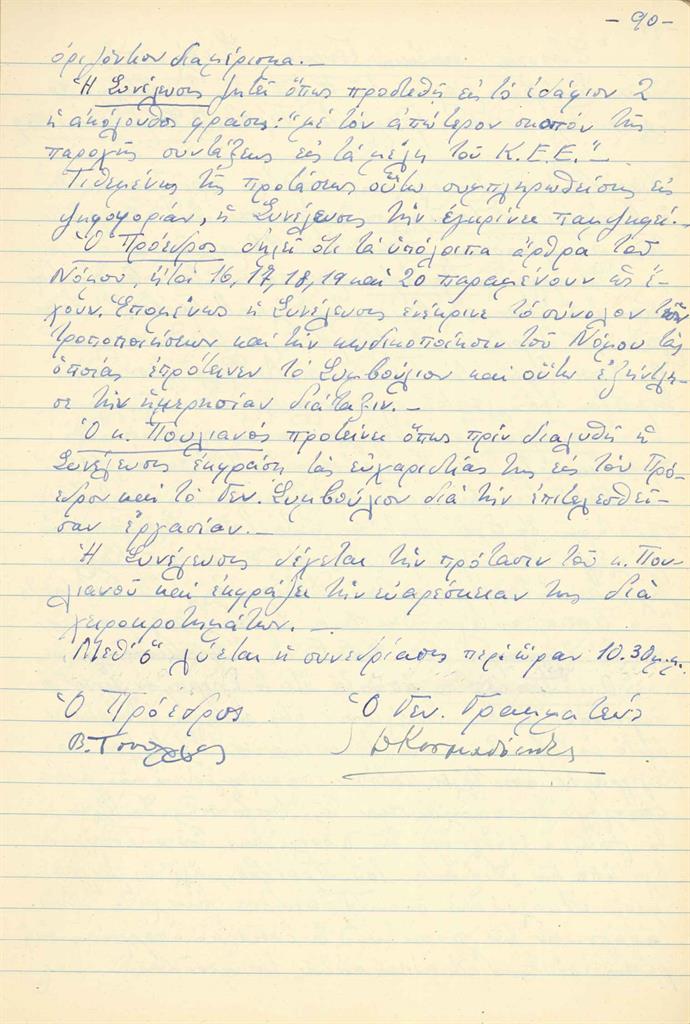 - 90 -
ὁριζόντιον διαμέρισμα. -
Ἡ Συνέλευσις ζητεῖ ὅπως προστεθῇ εἰς τὸ ἐδάφιον 2
ἡ ἀκόλουθος φράσις: "μὲ τὸν ἀπώτερον σκοπόν τῆς
παροχῆς συντάξεως εἰς τὰ μέλη τοῦ Κ.Ε.Ε." -
Τιθεμένης τῆς προτάσεως οὕτω συμπληρωθείσης εἰς
ψηφοφορίαν, ἡ Συνέλευσις τὴν ἐγκρίνει παμψηφεί. -
Ὁ Πρόεδρος δηλεῖ ὅτι τὰ ὑπόλοιπα ἄρθρα τοῦ
Νόμου, ἤτοι 16, 17, 18, 19 καὶ 20 παραμένουν ὡς ἔ-
χουν. Ἑπομένως ἡ Συνέλευσις ἐνέκρινε τὸ σύνολον τῶν
τροποποιήσεων καὶ τὴν κωδικοποίησιν τοῦ Νόμου τὰς
ὁποίας ἐπρότεινεν τὸ Συμβούλιον καὶ οὕτω ἐξήντλη-
σε τὴν ἡμερησίαν διάταξιν. -
Ὁ κ. Πουλιανός προτείνει ὅπως πρίν διαλυθῇ ἡ
Συνέλευσις ἐκφράσῃ τὰς εὐχαριστίας της εἰς τὸν Πρό-
εδρον καὶ τὸ Γεν. Συμβούλιον διὰ τὴν ἐπιτελεσθεῖ-
σαν ἐργασίαν. -
Ἡ Συνέλευσις δέχεται τὴν πρότασιν τοῦ κ. Που-
λιανοῦ καὶ ἐκφράζει τὴν εὐαρέσκειαν της διὰ
χειροκροτημάτων. -
Μεθ' ὅ λύεται ἡ συνεδρίασις περὶ ὥραν 10.30 μ.μ.
Ὁ Πρόεδρος Ὁ Γεν. Γραμματεύς
Β.